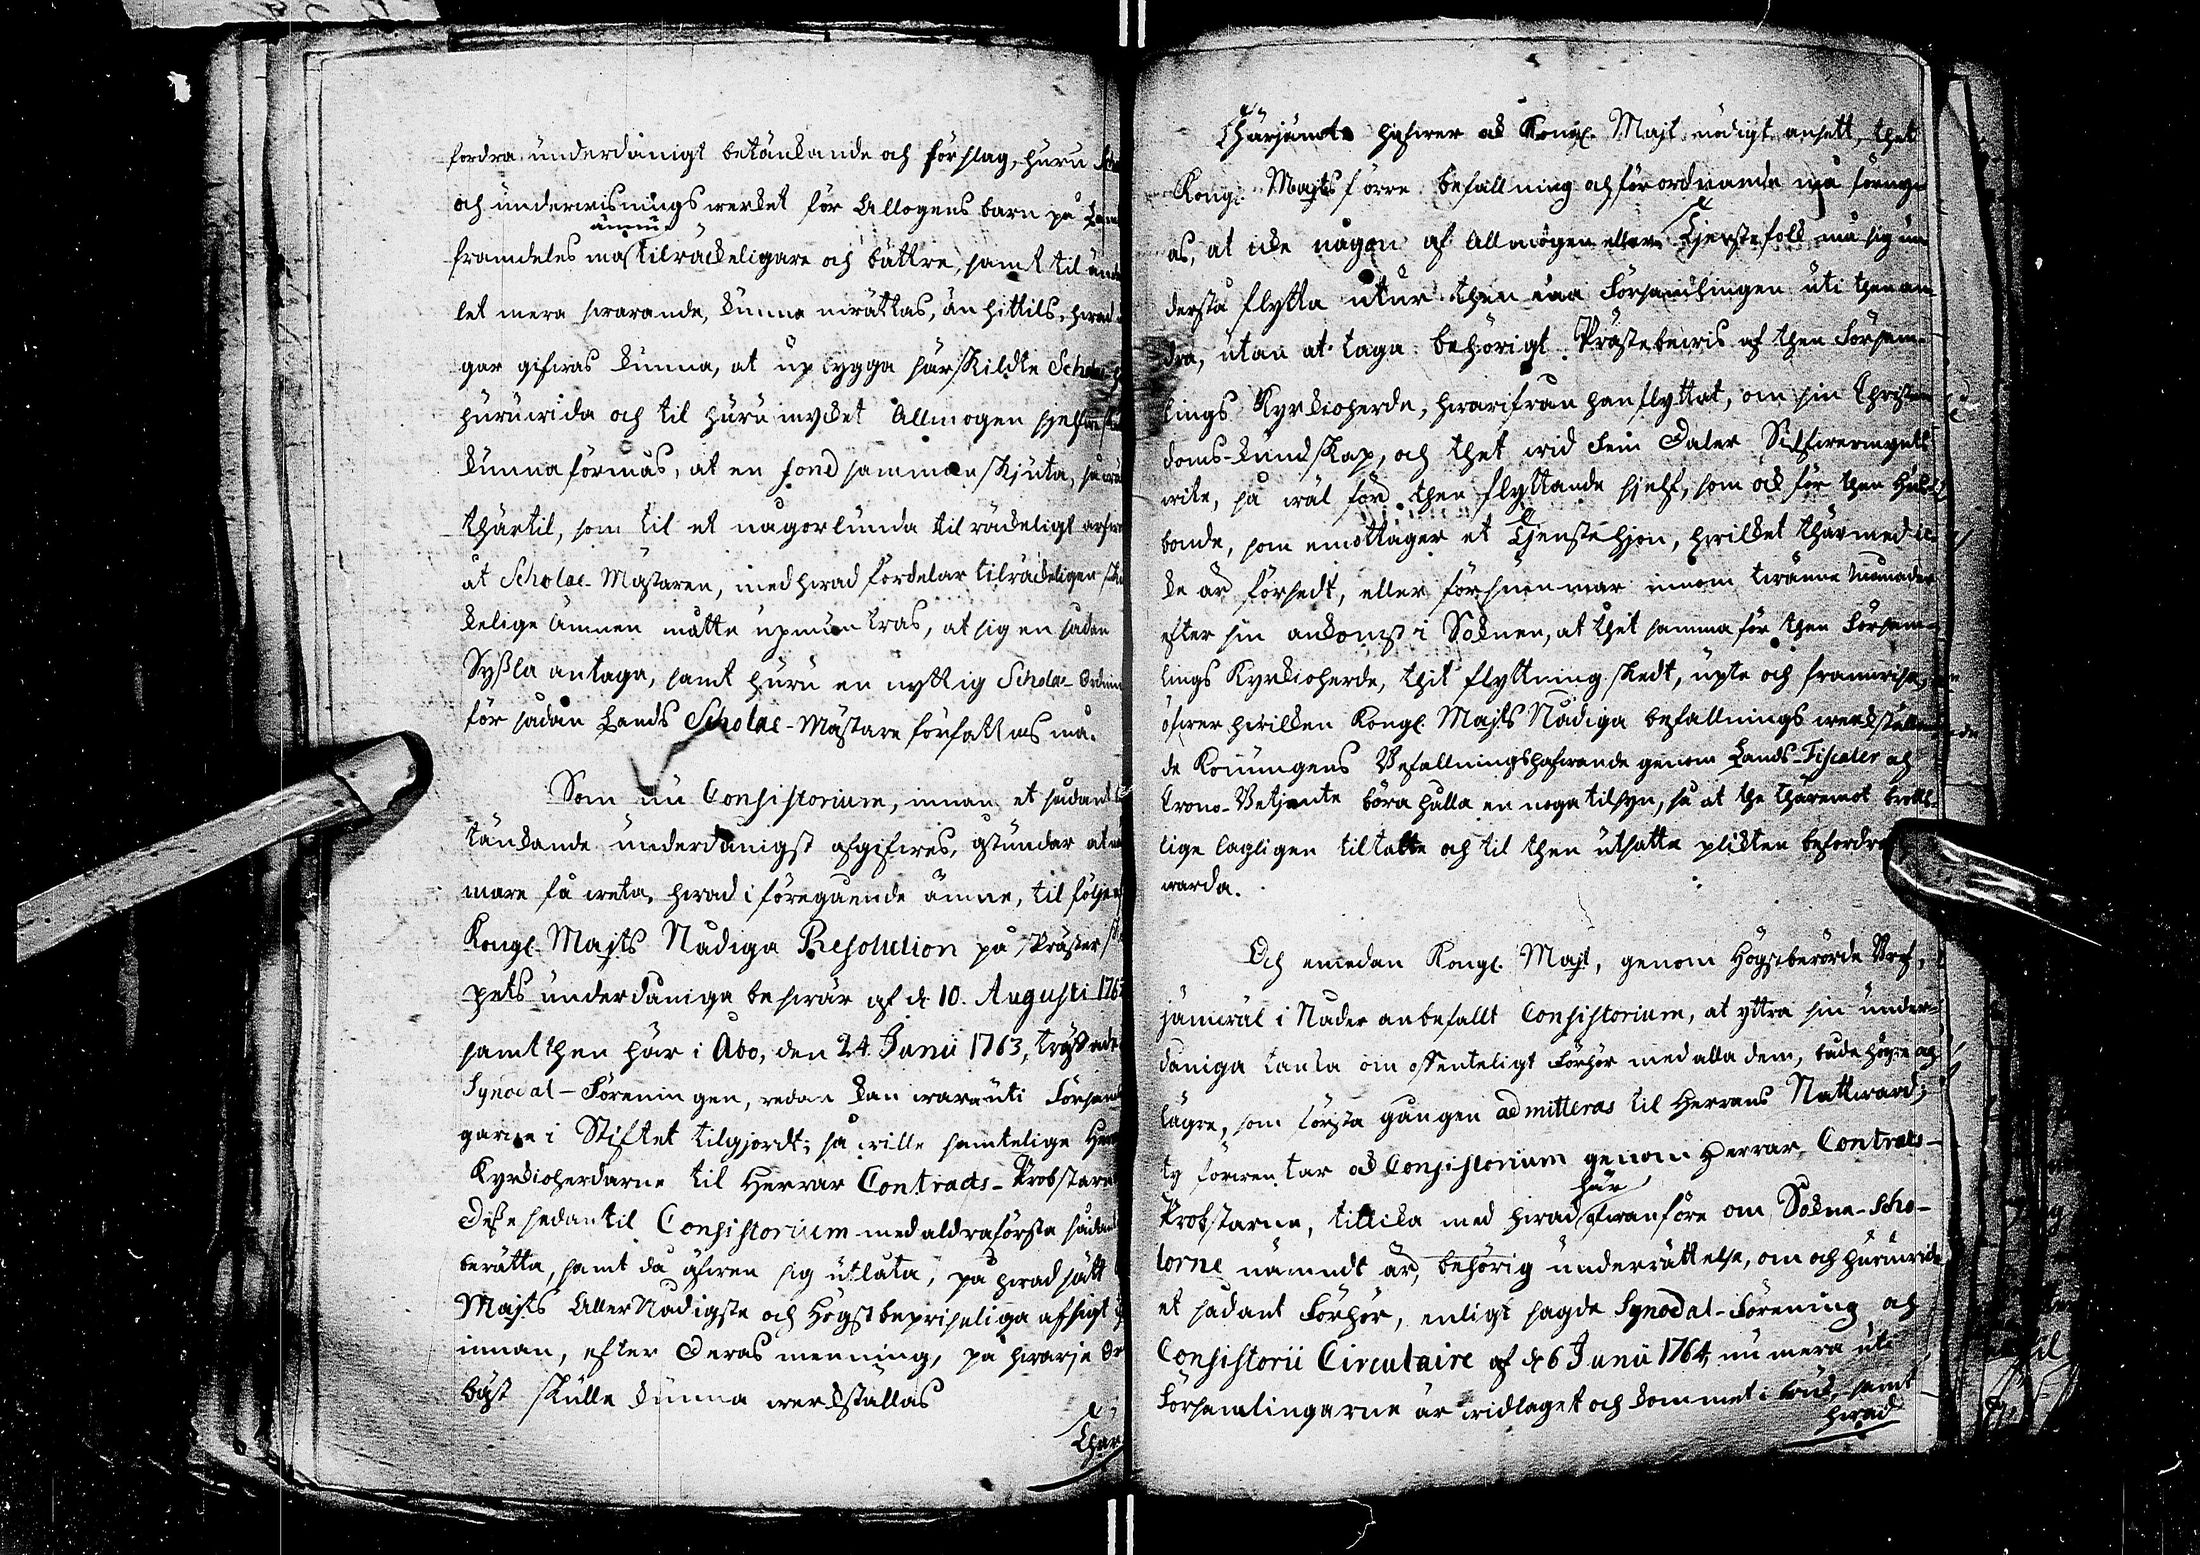 fordra underdånigt betänkande och förslag, huru
och underwisnings werket för Allogens barn på
ännu
framdeles mos tilräckeligare och bättre, samt til
let mera swarande, kunna inrättas, än hittils, hwad
gar gifwas kunna, at upbygga särskildte Scholae
huruwida och til huru mycket Allmogen sjelfwe
kunna förmås, at en fond sammanskjuta, så wäl
thärtil, som til et någorlunda tilräckeligt
åt Scholae-Mästaren, med hwad fördelar tilräckeligen
kelige ämnen måtte upmuntras, at sig en sådan
Sysla antaga, samt huru en nyttig Scholae-Ordning
för sådan Lands Scholae-Mästare författas må.
Som nu Consistorium, innan et sådant
tänkande underdånigst afgifwes, åstundar at
mare få weta, hwad i föregående ämne, til följe
Kongl. Majts Nådiga Resolution på Prästerska
pets underdåniga beswär af d. 10. Augusti 176
samt then här i Åbo, den 24. Junii 1763, tryckte
Synodal-Föreningen, redan kan wara uti Församlin
garne i Stiftet tilgjordt; så wille samtelige Herrar
Kyrkioherdarne til Herrar Contracts-Probstarne
Desse sedan til Consistorium med aldraförsta sådant
berätta, samt då äfwen sig utlåta, på hwad sätt
Majts AllerNådigste och Högstbeprisliga afsigt
innan, efter Deras mening, på hwarje Ort
bäst skulle kunna werkställas
Ther
Thärjämte hafwer ock Kongl. Majt nödigt ansett, thet
Kongl. Majts förre befallning och förordnande må förny
as, at icke någon af Allmogen eller Tjenstefolk må sig un
derstå flytta utur then ena Församlingen uti then an
dra, utan at taga behörigt Prästebewis af then Försam
lings Kyrkioherde, hwarifrån han flyttat, om sin Christen
doms-kundskap, och thet wid Fem Daler Silfwermynts
wite, så wäl för then flyttande sjelf, som ock för then Hus
bonde, som emottager et Tjenstehjon, hwilket thärmed ic
ke är försedt, eller försummar innom twänne månader
efter sin ankomst i Soknen, at thet samma för then Försam
lings Kyrkioherde, thit flyttning skedt, upte och framwisa,
öfwer hwilken Kongl. Majts Nådiga befallnings werkställan
de Konungens Befallningshafwande genom Lands-Fiscaler och
Crono-Betjente böra hålla en noga tilsyn, så at the thäremot brotts
lige lagligen tiltalte och til then utsatta plikten befordra
warda.
Och emedan Kongl. Majt, genom Högstberörde Bref,
jämwäl i Nåder anbefallt Consistorium, at yttra sin under
dåniga tanka om offenteligt Förhör med alla dem, både högre och
lägre, som första gången admitteras til Herrans Nattward;
ty förwentar ock Consistorium genom Herrar Contracts-
här
Probstarne, tillika med hwad ofwanföre om Sokne-Scho-
lorne nämndt är, behörig underrättelse, om och huruwida
et sådant Förhör, enligt sagde Synodal-Förening och
Consistorii Circulaire af d. 6 Junii 1764, nu mera uti
Församlingarne är widtaget och kommet i bruk, samt
hwad